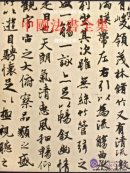 中國法書全集
峻領茂林脩竹又有清
帶左右引以為流觴曲
次雖無絲竹管弦之
一詠亦足以暢敘幽情
天朗氣清惠風和暢
觀宇宙之大俯察品類之盛
遊目騁懷足以極視聽